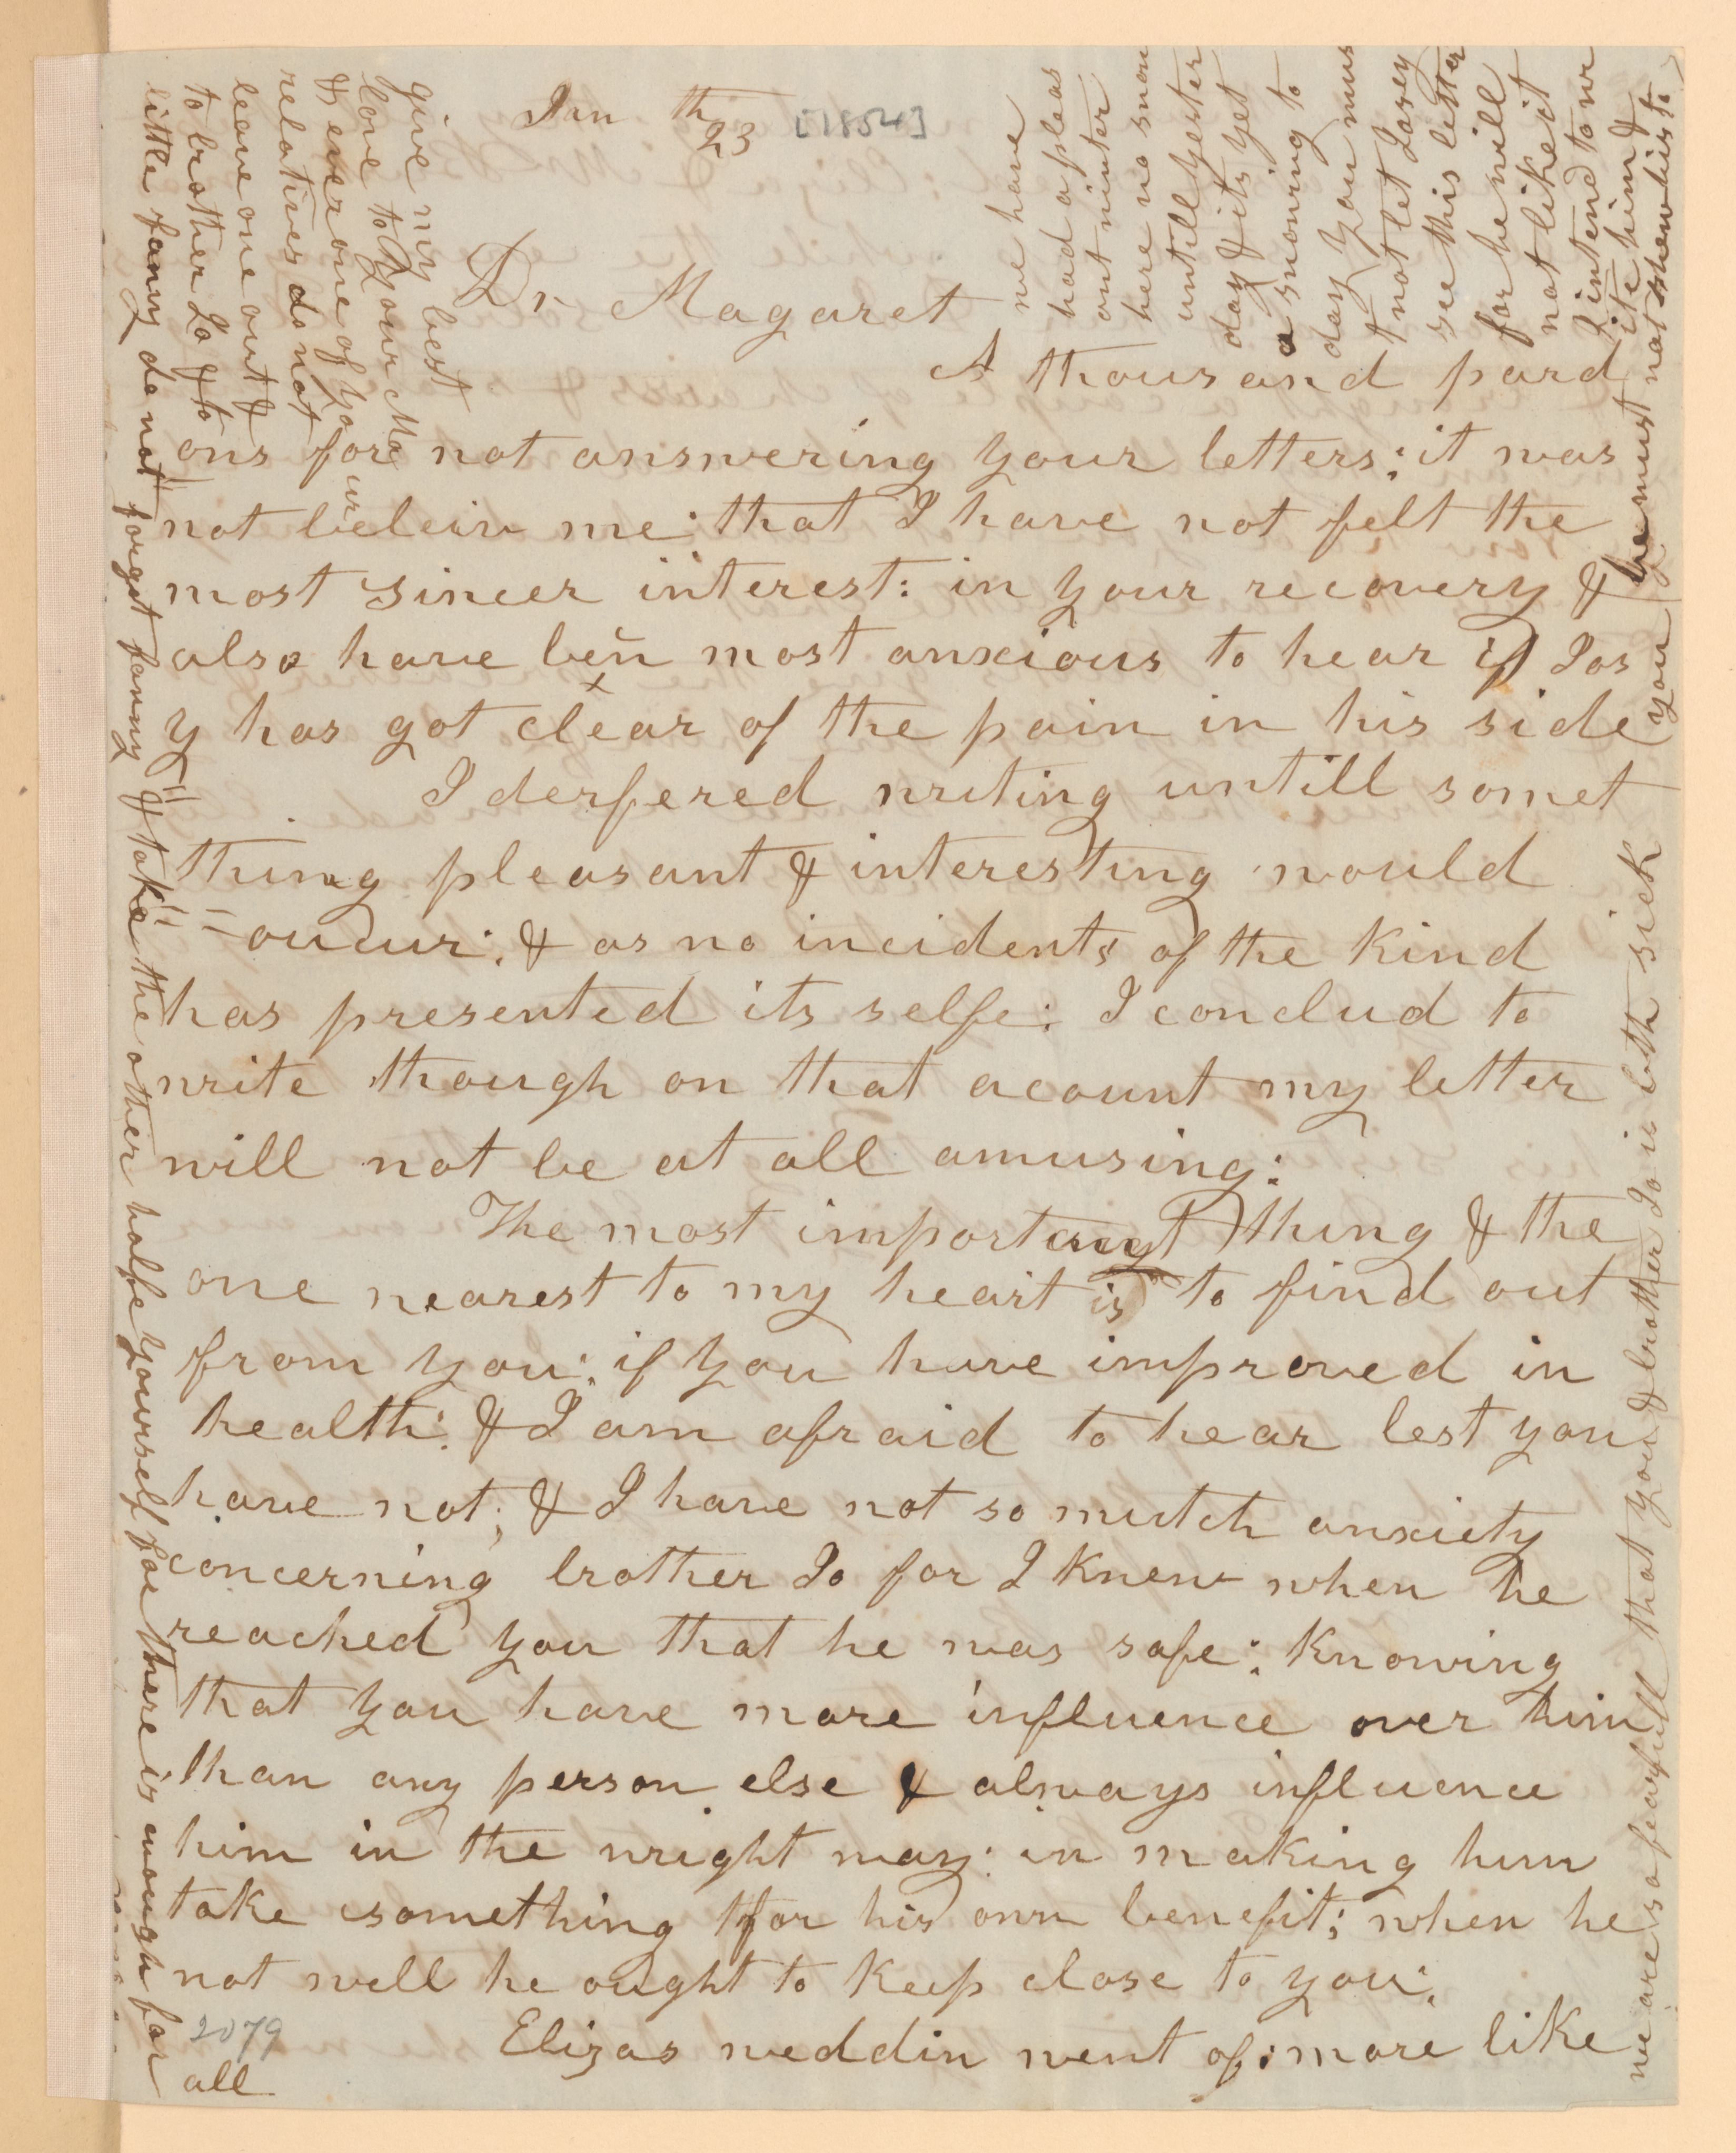 Jan 23th [1854]
Dr Magaret
A thousand pard
ons for not answering your letters; it was
not beleiv me; that I have not felt the
most sincer interest: in your recovery &
also have ben most anxious to hear if Jos
y has got clear of the pain in his side
I derfered writing untill somet
thing pleasant & interesting would
oucur; & as no incidents of the kind
has presented its selfe; I conclud to
write though on that acount my letter
will not be at all amusing;
The most important thing & the
one nearest to my heart is to find out
from you; if you have improved in
health; & I am afraid to hear lest you
have not; & I have not so mutch anxiety
concerning brother Jo for I knew when he
reached you that he was safe; knowing
that you have more influence over him
than any person else & always influence
him in the wright way; in making him
take something for his own benefit; when he
not well he ought to keep close to you;
Elizas weddin went of; more like
2079
give my best
love to your Ma
& ever one of your
relatives do not
leave one out &
to brother Jo & to
little fanny do not forget fanny & take the other halfe yourself for there is enough for
all
we have
had a pleas
ant winter
here no snow
untill yester
day & its yet
a snowing to
day you mus
t not let Josey
see this letter
for he will
not like it
I intend to wr
ite him &
he must not shew his to
you
we are so fearfull that you & brother Jo is both sick